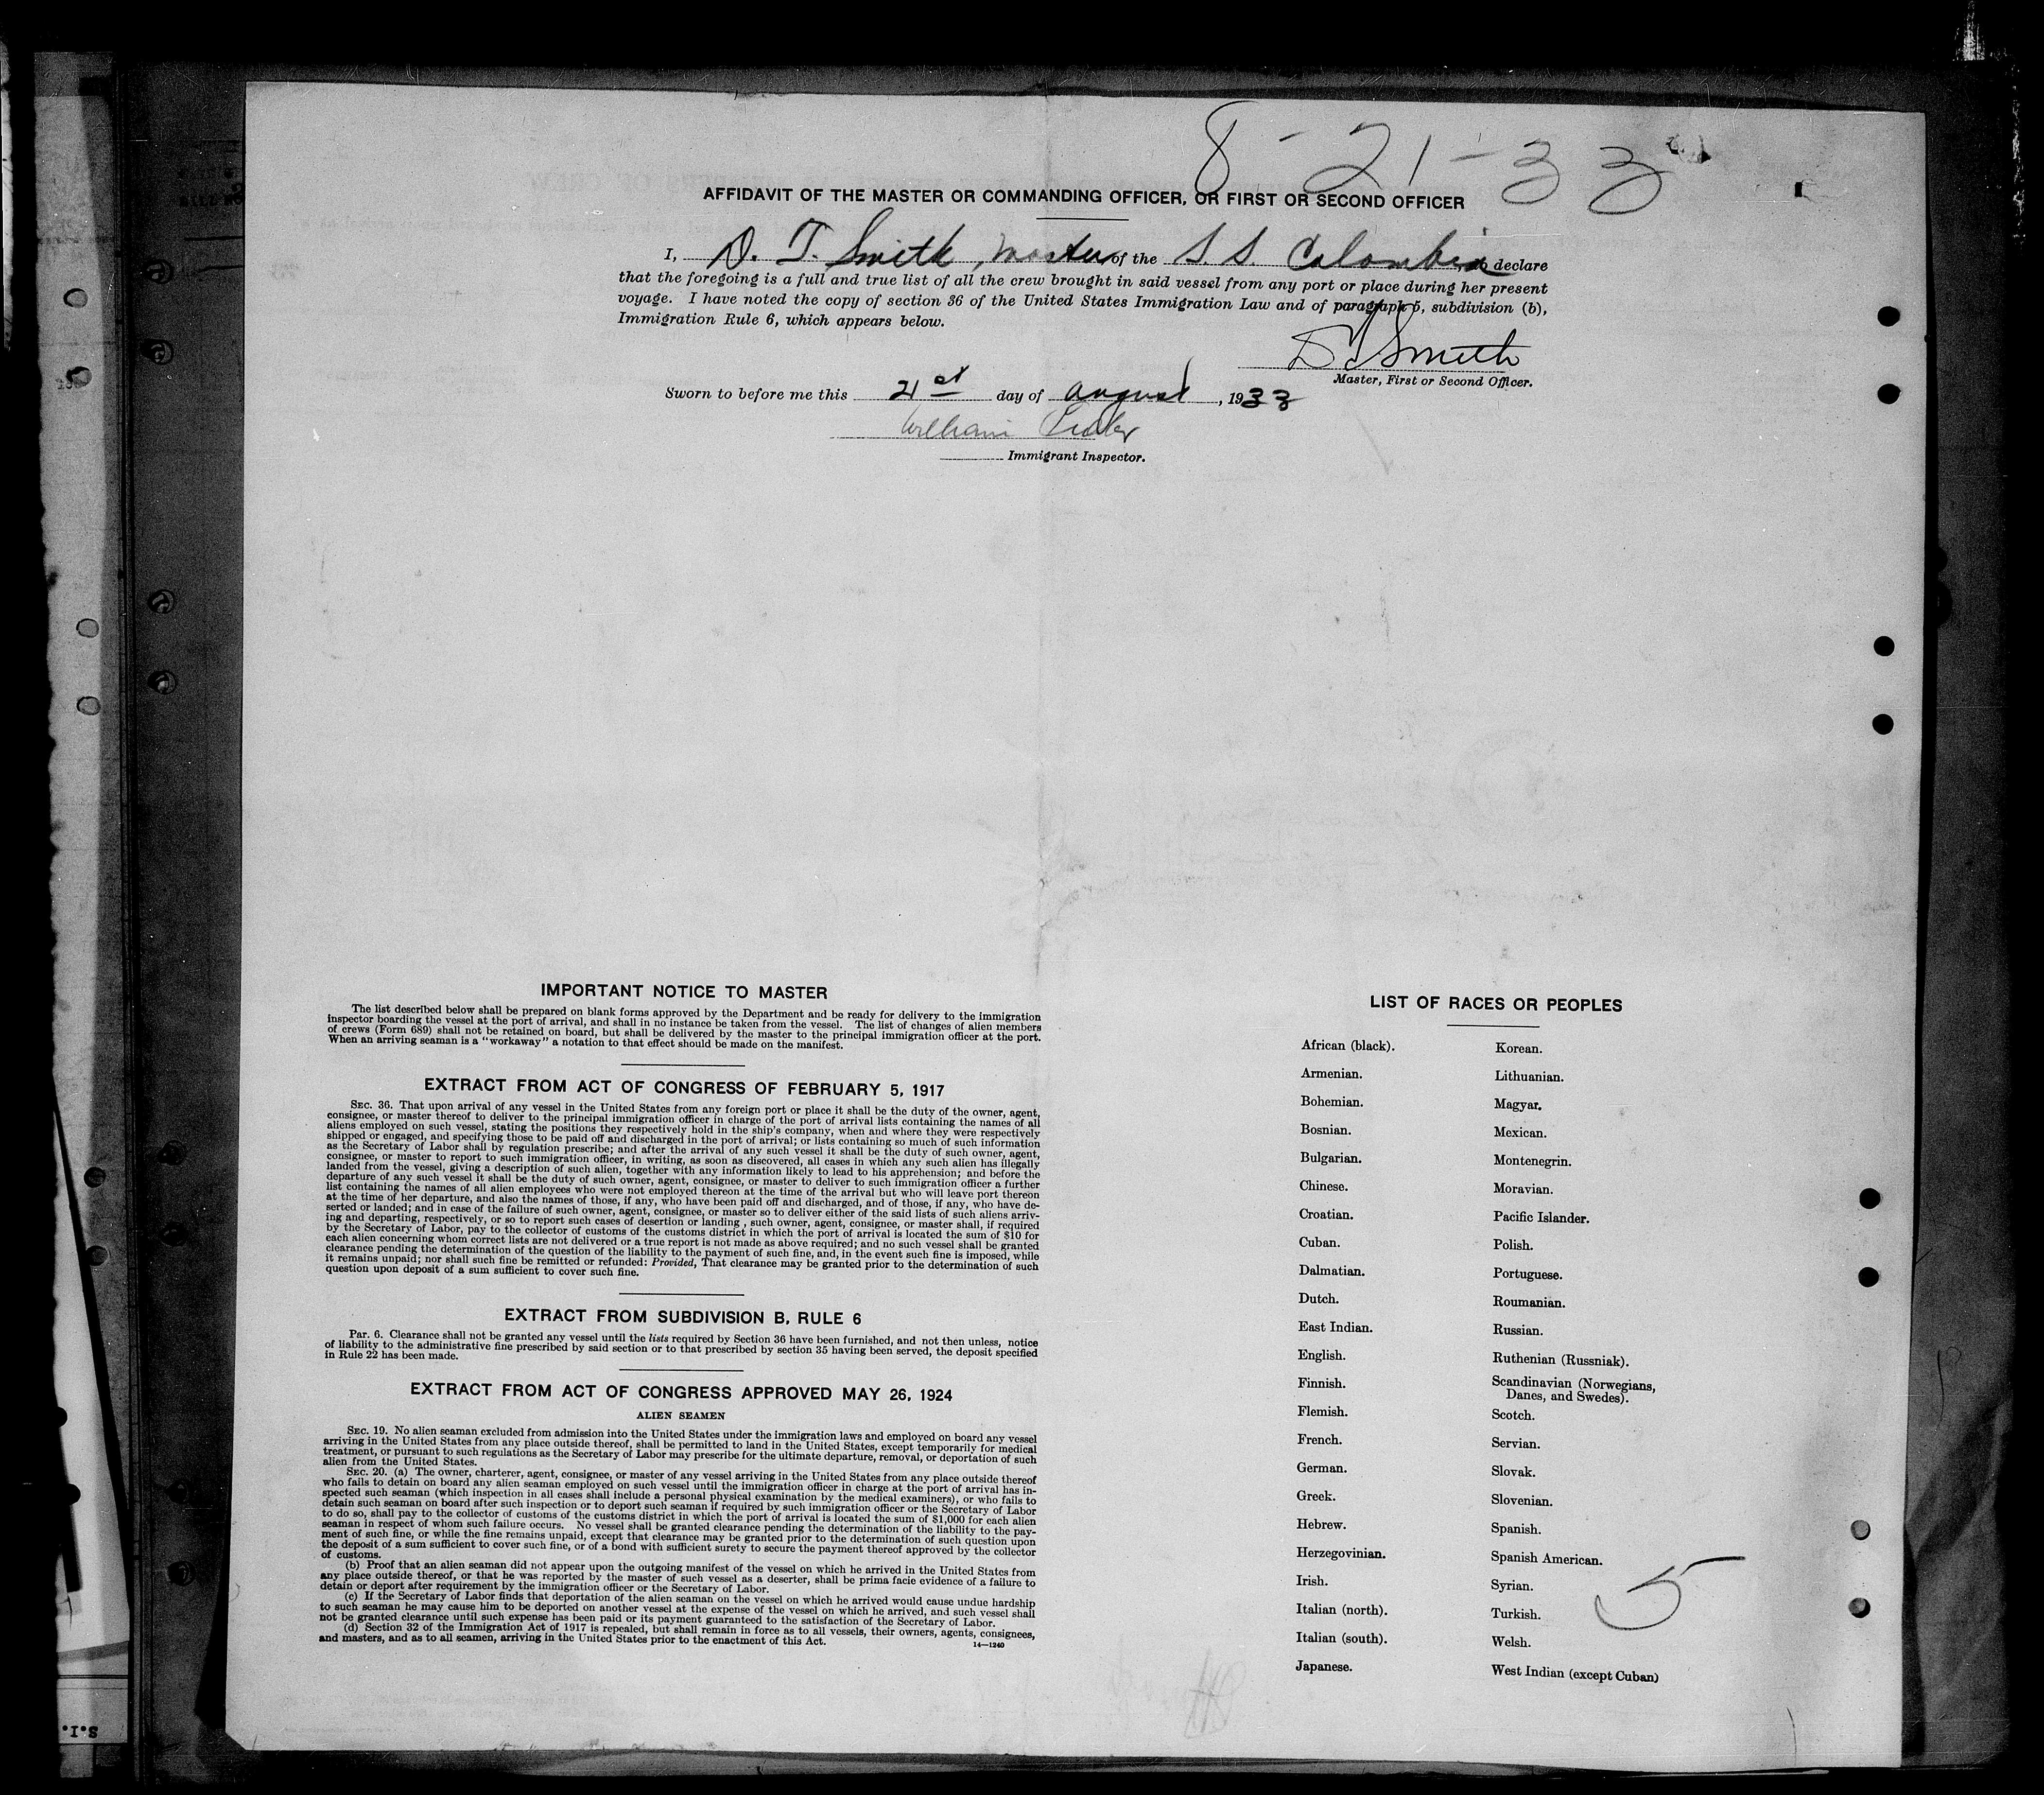 8-21-33
AFFIDAVIT OF THE MASTER OR COMMANDING OFFICER, OR FIRST OR SECOND OFFICER
I, D. T. Smith, Master of the S. S. Colombia, do declare
that the foregoing is a full and true list of all the crew brought in said vessel from any port or place during her present
voyage. I have noted the copy of section 36 of the United States Immigration Law and of paragraph 5, subdivision (b),
Immigration Rule 6, which appears below.
D T Smith
Master, First or Second Officer.
Sworn to before me this 21st day of august, 1933
William
Immigrant Inspector.
IMPORTANT NOTICE TO MASTER
The list described below shall be prepared on blank forms approved by the Department and be ready for delivery to the immigration
inspector boarding the vessel at the port of arrival, and shall in no instance be taken from the vessel. The list of changes of alien members
of crews (Form 689) shall not be retained on board, but shall be delivered by the master to the principal immigration officer at the port.
When an arriving seaman is a "workaway" a notation to that effect should be made on the manifest.
EXTRACT FROM ACT OF CONGRESS OF FEBRUARY 5, 1917
SEC. 36. That upon arrival of any vessel in the United States from any foreign port or place it shall be the duty of the owner, agent,
consignee, or master thereof to deliver to the principal immigration officer in charge of the port of arrival lists containing the names of all
aliens employed on such vessel, stating the positions they respectively hold in the ship's company, when and where they were respectively
shipped or engaged, and specifying those to be paid off and discharged in the port of arrival; or lists containing so much of such information
as the Secretary of Labor shall by regulation prescribe; and after the arrival of any such vessel it shall be the duty of such owner, agent,
consignee, or master to report to such immigration officer, in writing, as soon as discovered, all cases in which any such alien has illegally
landed from the vessel, giving a description of such alien, together with any information likely to lead to his apprehension; and before the
departure of any such vessel it shall be the duty of such owner, agent, consignee, or master to deliver to such immigration officer a further
list containing the names of all alien employees who were not employed thereon at the time of the arrival but who will leave port thereon
at the time of her departure, and also the names of those, if any, who have been paid off and discharged, and of those, if any, who have de-
serted or landed; and in case of the failure of such owner, agent, consignee, or master so to deliver either of the said lists of such aliens arriv-
ing and departing, respectively, or so to report such cases of desertion or landing, such owner, agent, consignee, or master shall, if required
by the Secretary of Labor, pay to the collector of customs of the customs district in which the port of arrival is located the sum of $10 for
each alien concerning whom correct lists are not delivered or a true report is not made as above required; and no such vessel shall be granted
clearance pending the determination of the question of the liability to the payment of such fine, and, in the event such fine is imposed, while
it remains unpaid; nor shall such fine be remitted or refunded: Provided, That clearance may be granted prior to the determination of such
question upon deposit of a sum sufficient to cover such fine.
EXTRACT FROM SUBDIVISION B, RULE 6
Par. 6. Clearance shall not be granted any vessel until the lists required by Section 36 have been furnished, and not then unless, notice
of liability to the administrative fine prescribed by said section or to that prescribed by section 35 having been served, the deposit specified
in Rule 22 has been made.
EXTRACT FROM ACT OF CONGRESS APPROVED MAY 26, 1924
ALIEN SEAMEN
SEC. 19. No alien seaman excluded from admission into the United States under the immigration laws and employed on board any vessel
arriving in the United States from any place outside thereof, shall be permitted to land in the United States, except temporarily for medical
treatment, or pursuant to such regulations as the Secretary of Labor may prescribe for the ultimate departure, removal, or deportation of such
alien from the United States.
SEC. 20. (a) The owner, charterer, agent, consignee, or master of any vessel arriving in the United States from any place outside thereof
who fails to detain on board any alien seaman employed on such vessel until the immigration officer in charge at the port of arrival has in-
spected such seaman (which inspection in all cases shall include a personal physical examination by the medical examiners), or who fails to
detain such seaman on board after such inspection or to deport such seaman if required by such immigration officer or the Secretary of Labor
to do so, shall pay to the collector of customs of the customs district in which the port of arrival is located the sum of $1,000 for each alien
seaman in respect of whom such failure occurs. No vessel shall be granted clearance pending the determination of the liability to the pay-
ment of such fine, or while the fine remains unpaid, except that clearance may be granted prior to the determination of such question upon
the deposit of a sum sufficient to cover such fine, or of a bond with sufficient surety to secure the payment thereof approved by the collector
of customs.
(b) Proof that an alien seaman did not appear upon the outgoing manifest of the vessel on which he arrived in the United States from
any place outside thereof, or that he was reported by the master of such vessel as a deserter, shall be prima facie evidence of a failure to
detain or deport after requirement by the immigration officer or the Secretary of Labor.
(c) If the Secretary of Labor finds that deportation of the alien seaman on the vessel on which he arrived would cause undue hardship
to such seaman he may cause him to be deported on another vessel at the expense of the vessel on which he arrived, and such vessel shall
not be granted clearance until such expense has been paid or its payment guaranteed to the satisfaction of the Secretary of Labor.
(d) Section 32 of the Immigration Act of 1917 is repealed, but shall remain in force as to all vessels, their owners, agents, consignees,
and masters, and as to all seamen, arriving in the United States prior to the enactment of this Act.
14—1240
LIST OF RACES OR PEOPLES
African (black).
Armenian.
Bohemian.
Bosnian.
Bulgarian.
Chinese.
Croatian.
Cuban.
Dalmatian.
Dutch.
East Indian.
English.
Finnish.
Flemish.
French.
German.
Greek.
Hebrew.
Herzegovinian.
Irish.
Italian (north).
Italian (south).
Japanese.
Korean.
Lithuanian.
Magyar.
Mexican.
Montenegrin.
Moravian.
Pacific Islander.
Polish.
Portuguese.
Roumanian.
Russian.
Ruthenian (Russniak).
Scandinavian (Norwegians,
Danes, and Swedes).
Scotch.
Servian.
Slovak.
Slovenian.
Spanish.
Spanish American.
Syrian.
Turkish.
Welsh.
West Indian (except Cuban)
5
S.I.